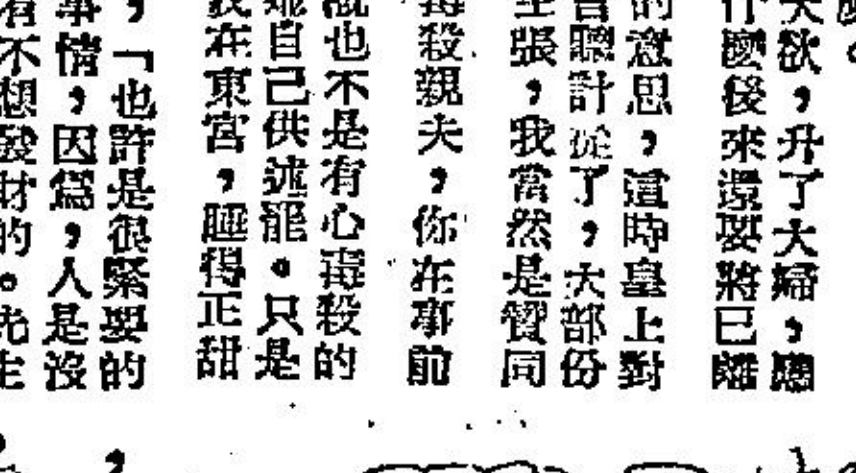 麼。
大欲，升了大婦，應
什麼後來還要將已離
的意思，這時皇上對
言聽計從了，大部份
主張，我當然是贊同
毒殺親夫，你在事前
就也不是有心毒殺的
她自己供述罷。只是
我在東宮，睡得正甜
，「也許是很緊要的
事情，因爲，人是沒
有不想發財的。先生